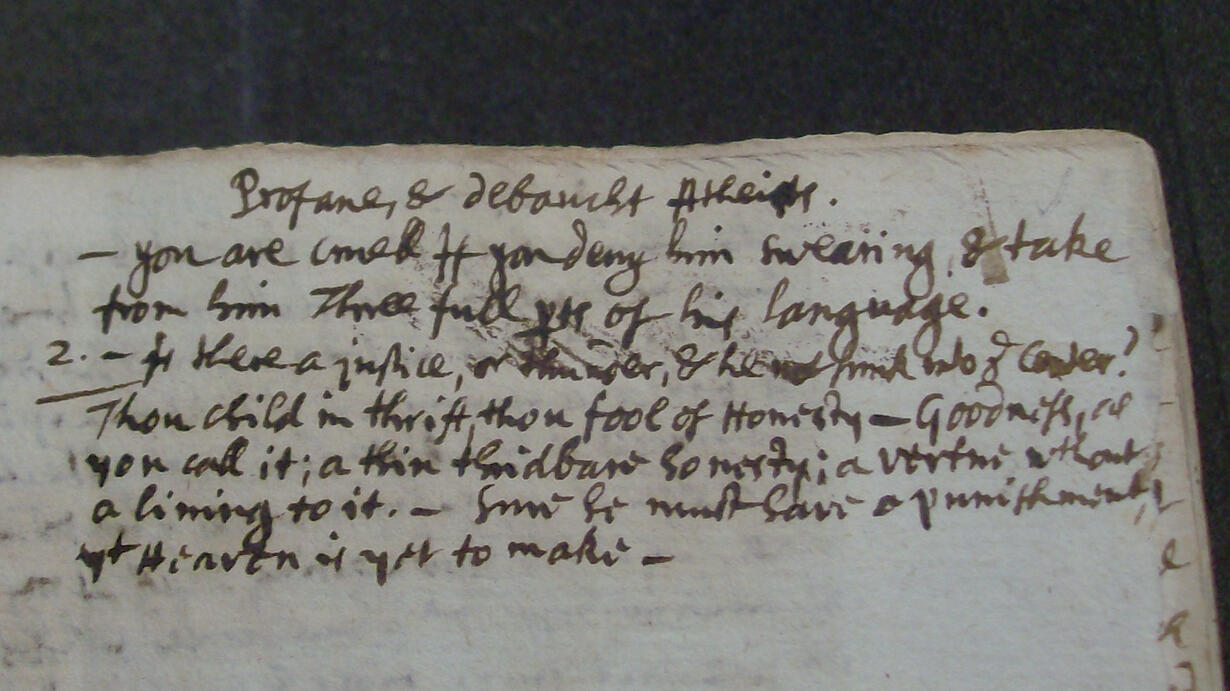 Profane, & debaucht Atheists.
– you are cruell If you deny him swearing, & take
from him Three full pts of his language.
2. – Is there a justice, or thunder, & he not sunk into ye Center?
Thou child in thrift, thou fool of Honesty – Goodness, as
you call it; a thin thridbare honesty; a vertue without
a lining to it. – Sure he must have a punishment,
yt Heaven is yet to make –